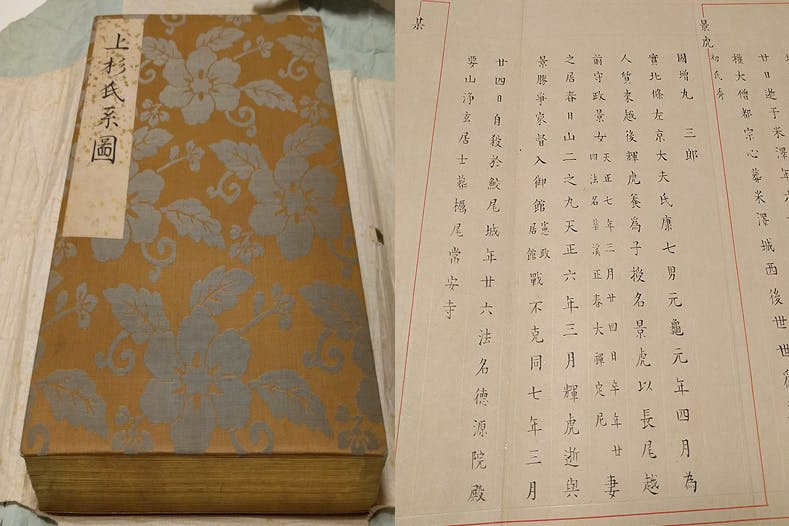 上杉氏系圖
廿日逝于米澤年六
權大僧都宗心墓米澤城西後世世
景虎
初氏秀
國增丸 三郎
實北條左京大夫氏康七男元龜元年四月為
人質來越後輝虎養為子授名景虎以長尾越
前守政景女 天正七年三月廿四日卒年廿
四法名華溪正春大禪定尼 妻
之居春日山二之九天正六年三月輝虎逝與
景勝爭家督入御館 憲政
居館 戰不克同七年三月
廿四日自殺於鮫尾城年廿六法名德源院殿
要山淨玄居士葬櫔尾常安寺
某